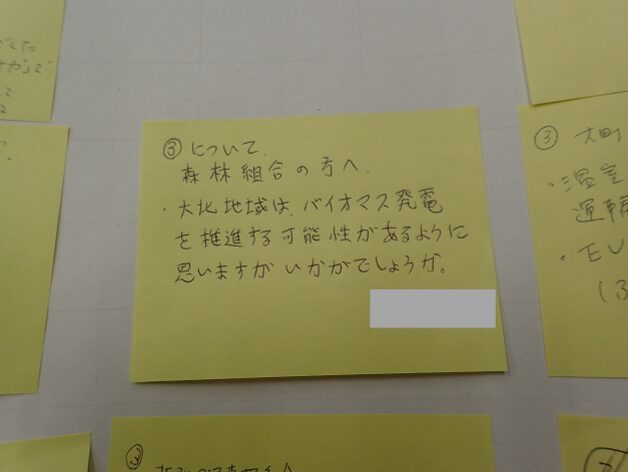 ③ について
森林組合の方へ
・大北地域は、バイオマス発電
を推進する可能性があるように
思いますがいかがでしょうか。
③ 大町
・温室
運輸
・EV